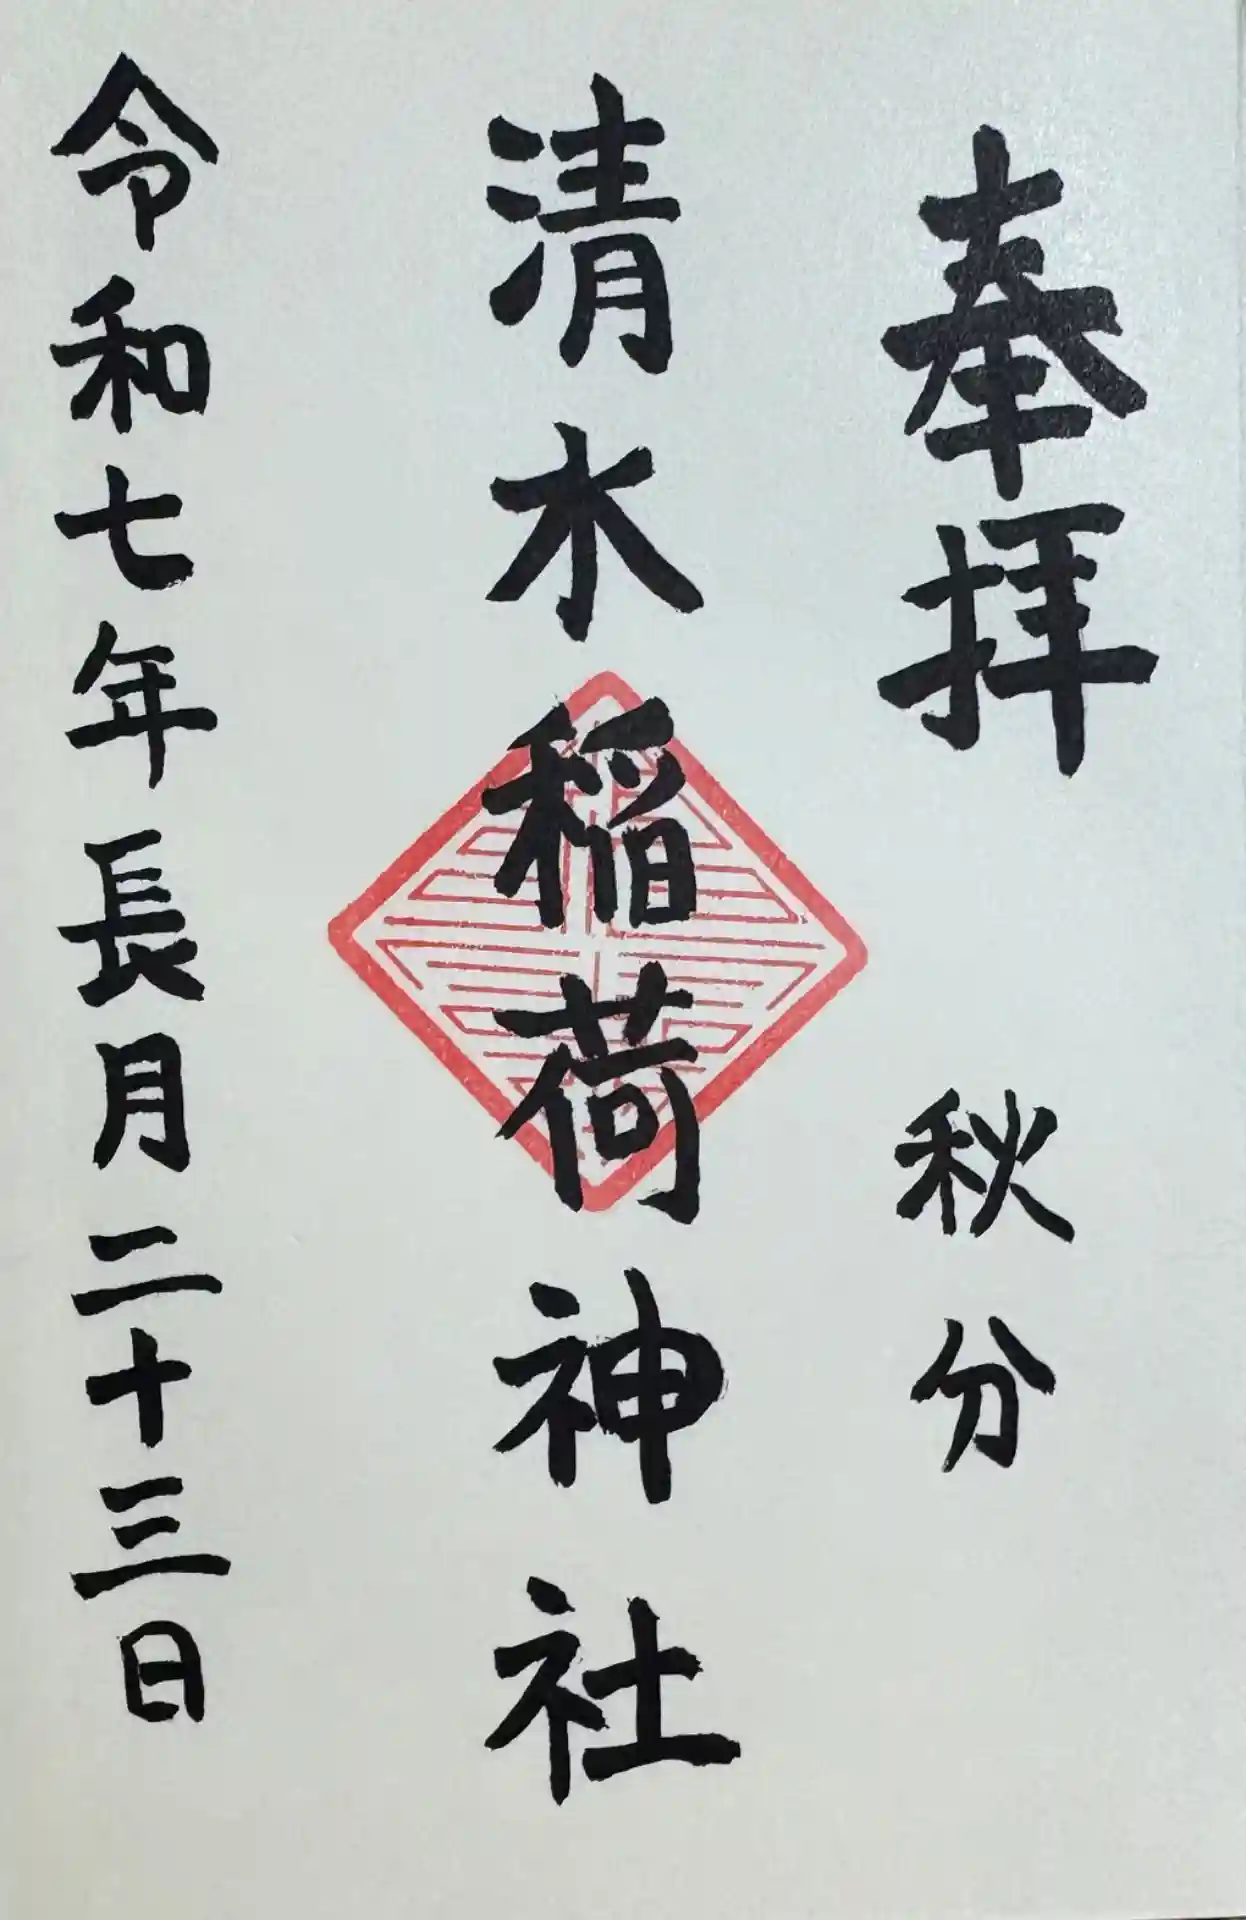 奉拝 秋分
清水稲荷神社
令和七年長月二十三日